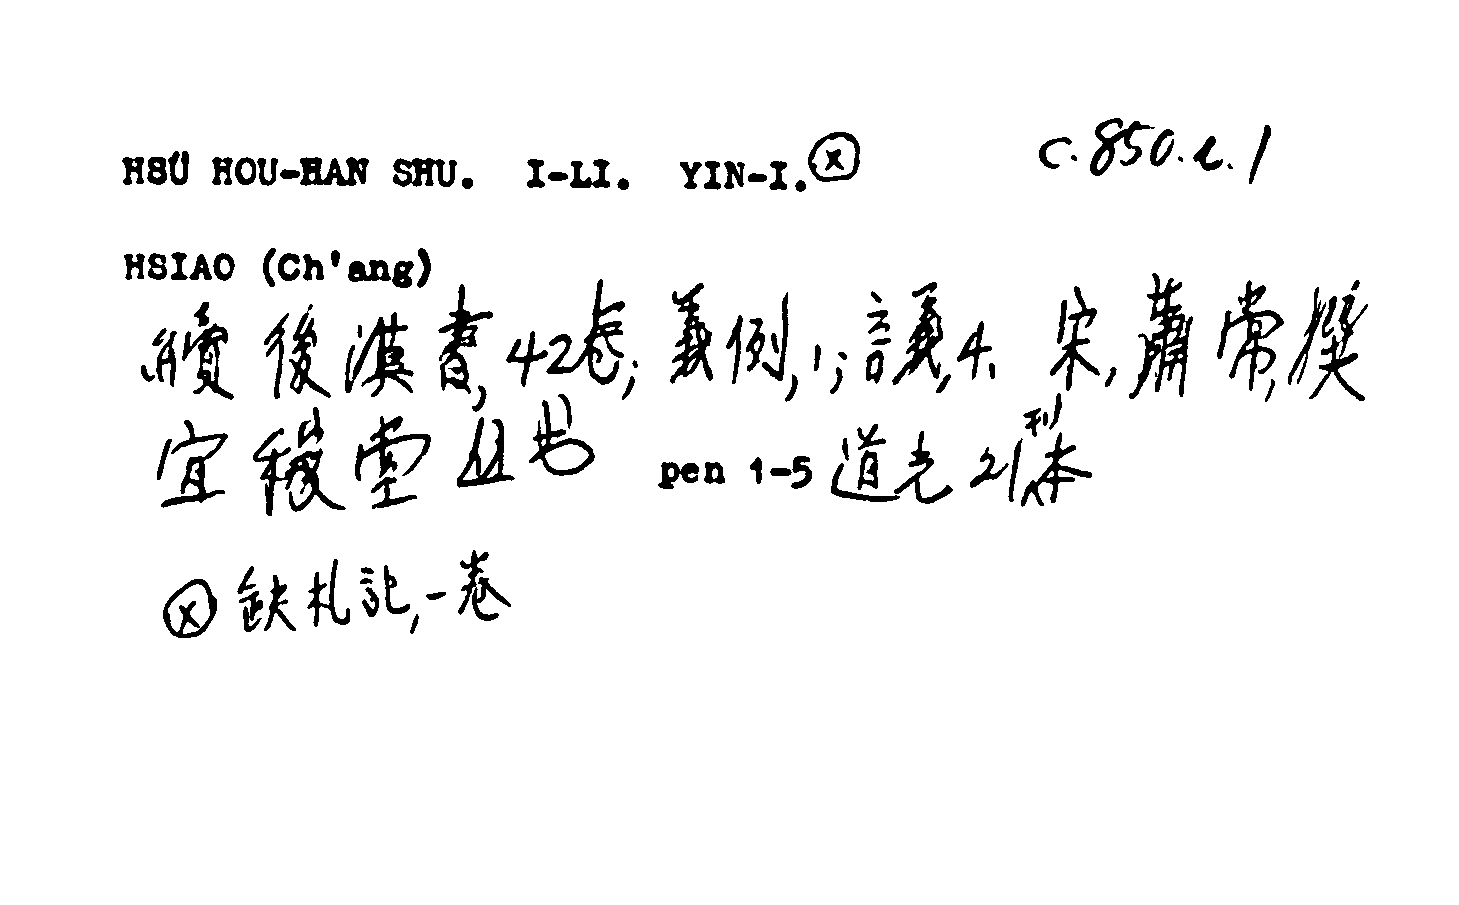 HSÜ HOU-HAN SHU. I-LI. YIN-I. ⓧ C.850.e.1
HSIAO (Ch'ang)
續後漢書, 42卷; 義例, 1; 音義, 4. 宋, 蕭常, 撰
宜稼堂丛书 pen 1-5 道光21刊本
ⓧ 缺札記, 一卷